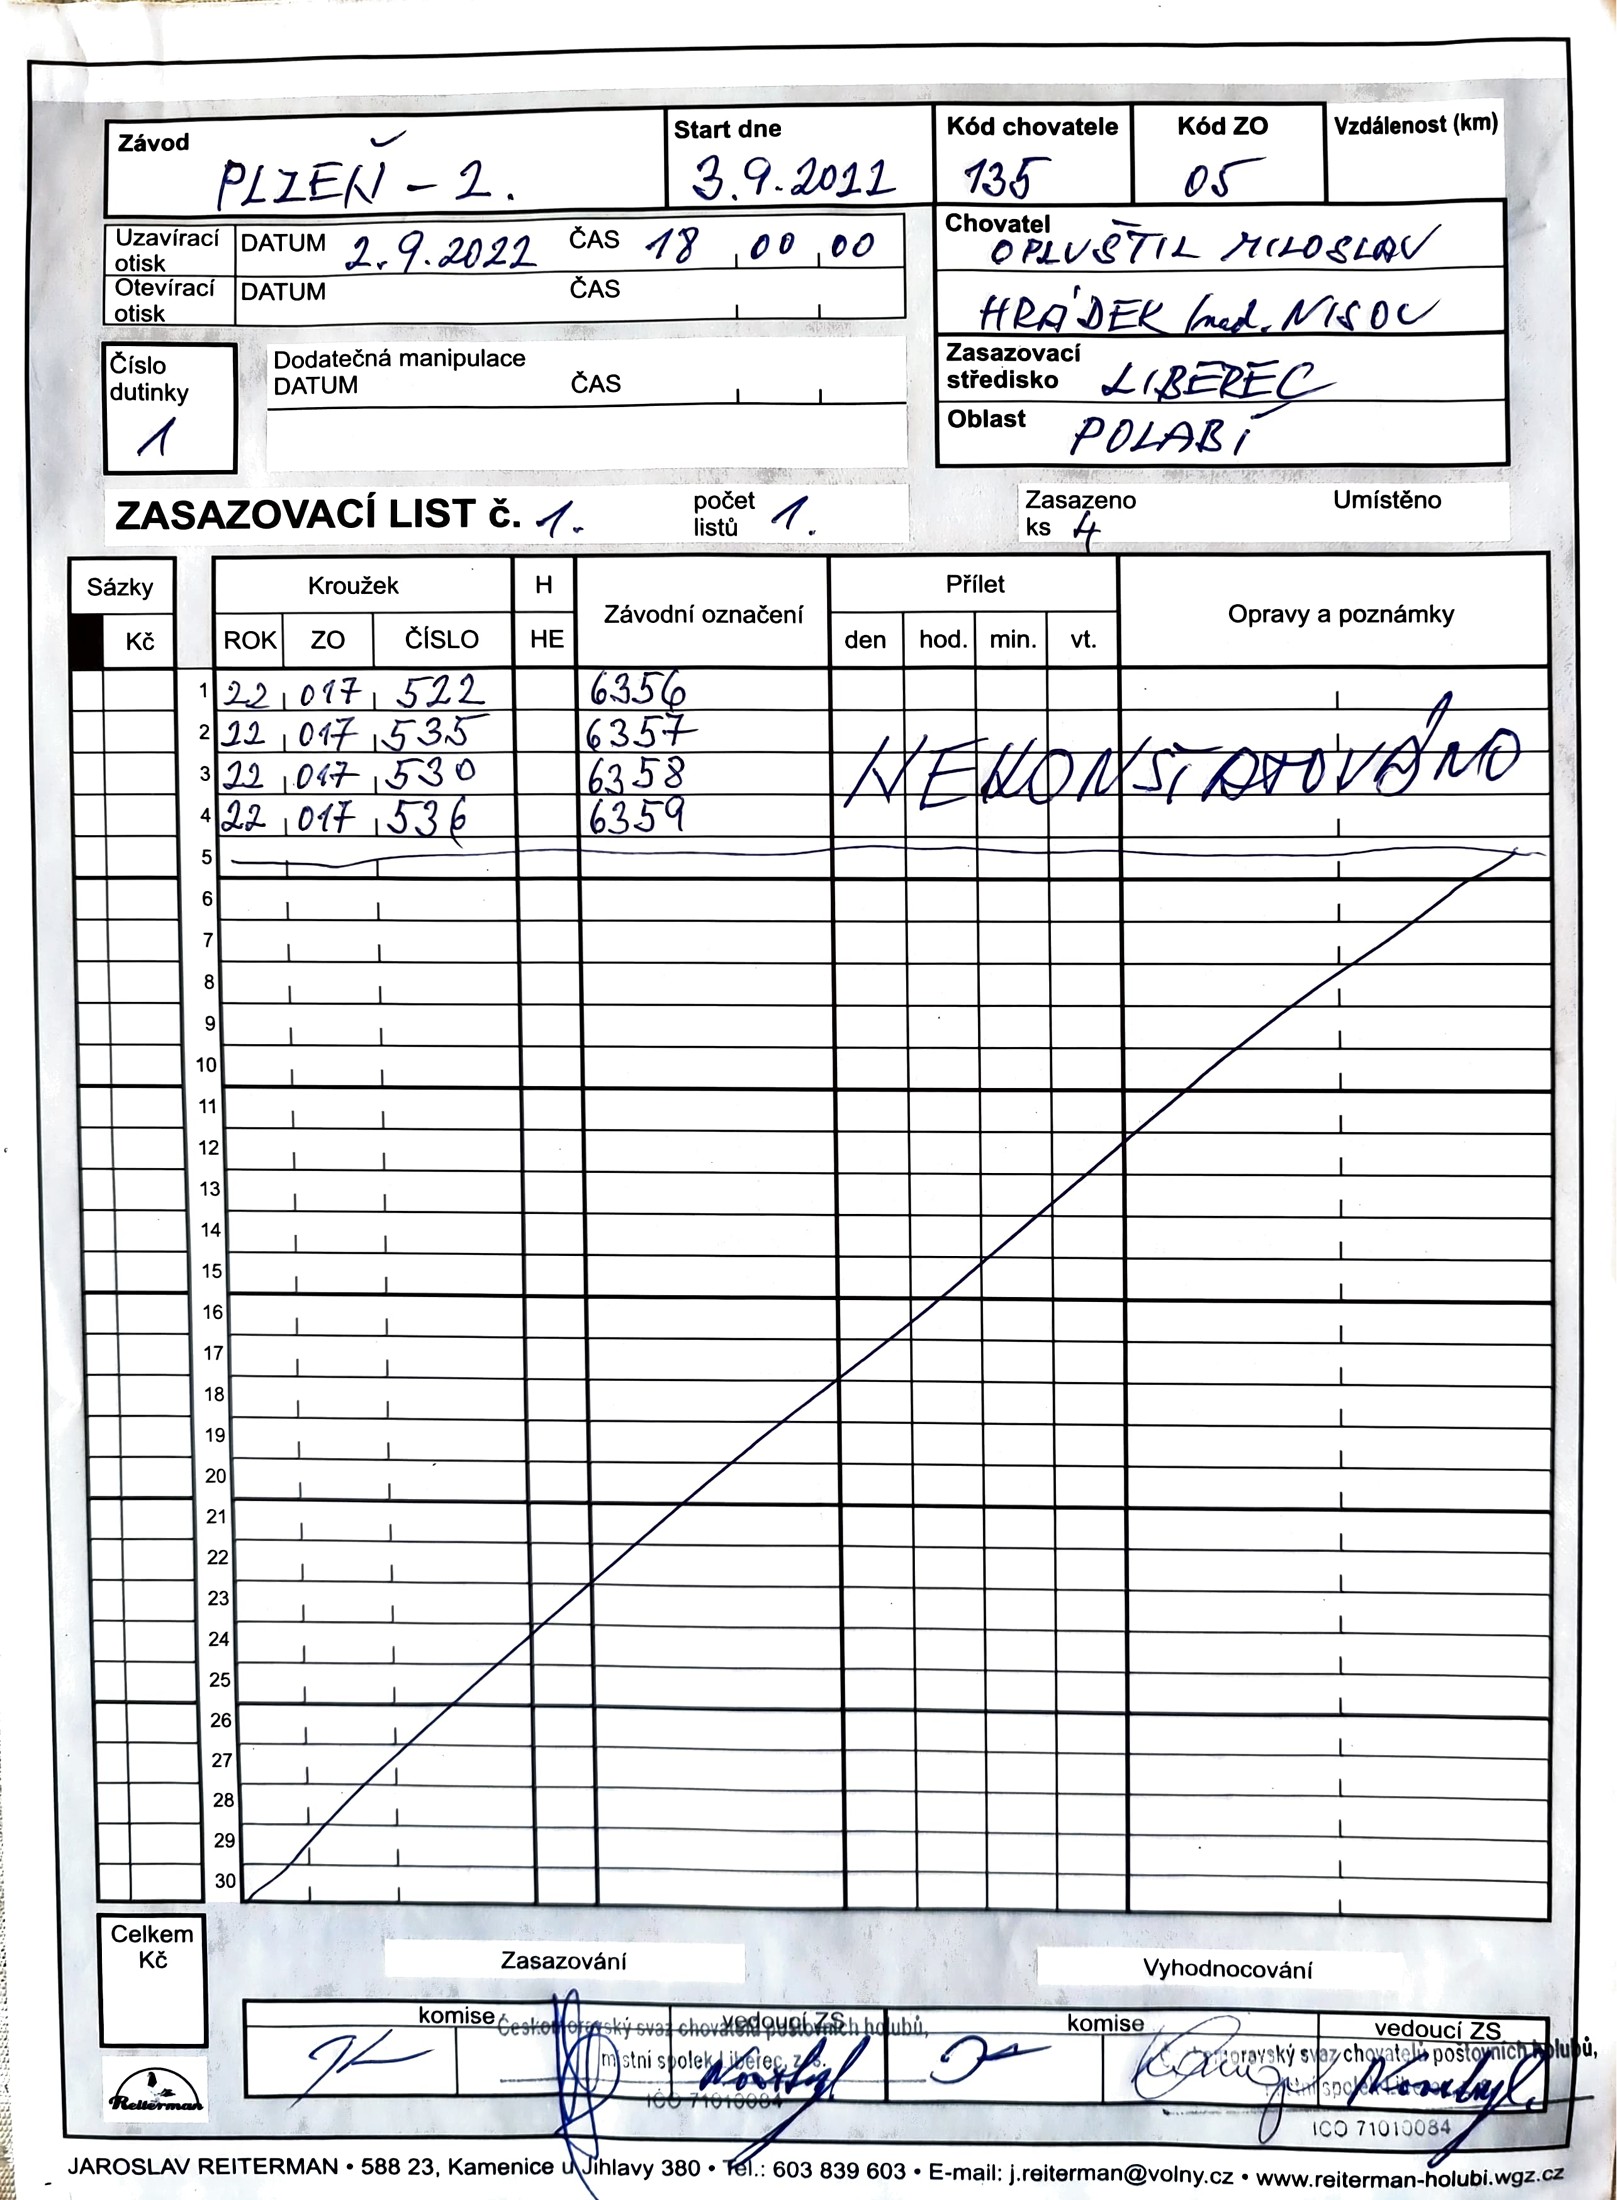 Závod
PLZEŇ - 2.
Start dne
3.9.2022
Kód chovatele
135
Kód ZO
05
Vzdálenost (km)
Uzavírací otisk DATUM 2.9.2022 ČAS 18 00 00
Otevírací otisk DATUM ČAS
Chovatel
OPLUŠTIL MILOSLAV
HRÁDEK nad. NISOU
Zasazovací středisko LIBEREC
Oblast POLABÍ
Číslo dutinky
1
Dodatečná manipulace
DATUM ČAS
ZASAZOVACÍ LIST č. 1. počet listů 1.
Zasazeno ks 4 Umístěno
Sázky Kroužek H Závodní označení Přílet Opravy a poznámky
Kč ROK ZO ČÍSLO HE den hod. min. vt.
1 22 017 522 6356
2 22 017 535 6357
3 22 017 530 6358
4 22 017 536 6359
NEKONSTATOVÁNO
5
6
7
8
9
10
11
12
13
14
15
16
17
18
19
20
21
22
23
24
25
26
27
28
29
30
Celkem Kč
Zasazování Vyhodnocování
komise vedoucí ZS komise vedoucí ZS
Českomoravský svaz chovatelů poštovních holubů,
místní spolek Liberec, z.s.
IČO 71010084
moravský svaz chovatelů poštovních holubů,
IČO 71010084
Reiterman
JAROSLAV REITERMAN • 588 23, Kamenice u Jihlavy 380 • Tel.: 603 839 603 • E-mail: j.reiterman@volny.cz • www.reiterman-holubi.wgz.cz